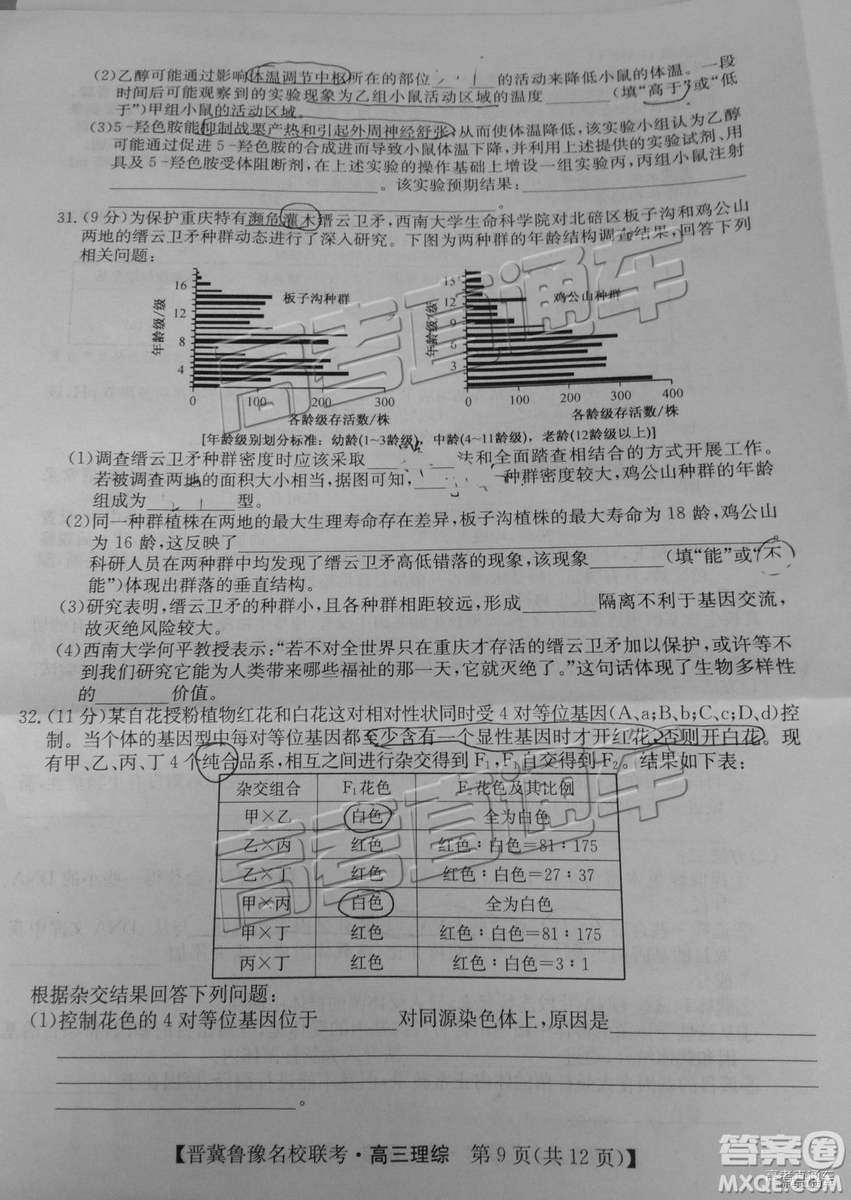 (2)乙醇可能通过影响体温调节中枢所在的部位 的活动来降低小鼠的体温。一段
时间后可能观察到的实验现象为乙组小鼠活动区域的温度________(填“高于”或“低
于”)甲组小鼠的活动区域。
(3)5-羟色胺能抑制战栗产热和引起外周神经舒张,从而使体温降低,该实验小组认为乙醇
可能通过促进5-羟色胺的合成进而导致小鼠体温下降,并利用上述提供的实验试剂、用
具及5-羟色胺受体阻断剂,在上述实验的操作基础上增设一组实验丙,丙组小鼠注射
________。该实验预期结果:________
________。
31.(9分)为保护重庆特有濒危灌木缙云卫矛,西南大学生命科学院对北碚区板子沟和鸡公山
两地的缙云卫矛种群动态进行了深入研究。下图为两种群的年龄结构调查结果,回答下列
相关问题:
年龄级/级
16
12
8
4
板子沟种群
0 100 200 300
各龄级存活数/株
年龄级/级
15
12
9
6
3
鸡公山种群
0 100 200 300 400
各龄级存活数/株
[年龄级别划分标准:幼龄(1~3龄级),中龄(4~11龄级),老龄(12龄级以上)]
(1)调查缙云卫矛种群密度时应该采取________法和全面踏查相结合的方式开展工作。
若被调查两地的面积大小相当,据图可知,________种群密度较大,鸡公山种群的年龄
组成为________型。
(2)同一种群植株在两地的最大生理寿命存在差异,板子沟植株的最大寿命为18龄,鸡公山
为16龄,这反映了________
科研人员在两种群中均发现了缙云卫矛高低错落的现象,该现象________(填“能”或“不
能”)体现出群落的垂直结构。
(3)研究表明,缙云卫矛的种群小,且各种群相距较远,形成________隔离不利于基因交流,
故灭绝风险较大。
(4)西南大学何平教授表示:“若不对全世界只在重庆才存活的缙云卫矛加以保护,或许等不
到我们研究它能为人类带来哪些福祉的那一天,它就灭绝了。”这句话体现了生物多样性
的________价值。
32.(11分)某自花授粉植物红花和白花这对相对性状同时受4对等位基因(A、a;B、b;C、c;D、d)控
制。当个体的基因型中每对等位基因都至少含有一个显性基因时才开红花,否则开白花。现
有甲、乙、丙、丁4个纯合品系,相互之间进行杂交得到F₁,F₁自交得到F₂。结果如下表:
杂交组合 F₁花色 F₂花色及其比例
甲×乙 白色 全为白色
乙×丙 红色 红色:白色=81:175
乙×丁 红色 红色:白色=27:37
甲×丙 白色 全为白色
甲×丁 红色 红色:白色=81:175
丙×丁 红色 红色:白色=3:1
根据杂交结果回答下列问题:
(1)控制花色的4对等位基因位于________对同源染色体上,原因是________
________
________。
【晋冀鲁豫名校联考·高三理综 第9页(共12页)】
高考直通车
高考直通车
答案圈
MXQE.COM
高考直通车